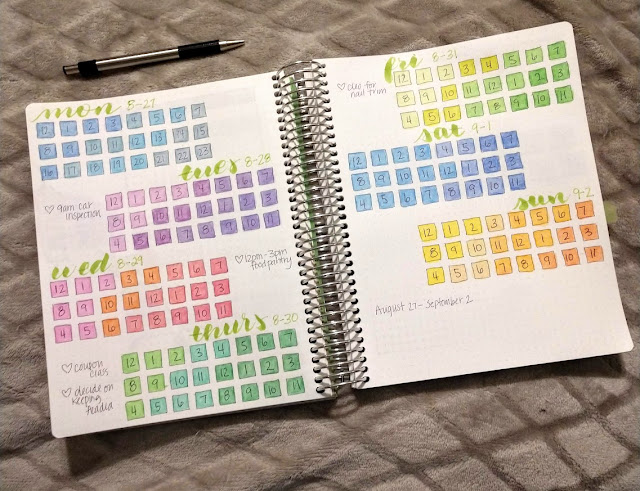 mon 8-27
12 1 2 3 4 5 6 7
8 9 10 11 12 13 14 15
16 17 18 19 20 21 22 23
tues 8-28
♡ 9am car
inspection
12 1 2 3 4 5 6 7
8 9 10 11 12 1 2 3
4 5 6 7 8 9 10 11
wed 8-29
♡ 12pm-3pm
food pantry
12 1 2 3 4 5 6 7
8 9 10 11 12 1 2 3
4 5 6 7 8 9 10 11
thurs 8-30
♡ coupon
class
♡ decide on
keeping
Acadia
12 1 2 3 4 5 6 7
8 9 10 11 12 1 2 3
4 5 6 7 8 9 10 11
fri 8-31
♡ for
nail trim
12 1 2 3 4 5 6 7
8 9 10 11 12 1 2 3
4 5 6 7 8 9 10 11
sat 9-1
12 1 2 3 4 5 6 7
8 9 10 11 12 1 2 3
4 5 6 7 8 9 10 11
sun 9-2
12 1 2 3 4 5 6 7
8 9 10 11 12 1 2 3
4 5 6 7 8 9 10 11
August 27-September 2